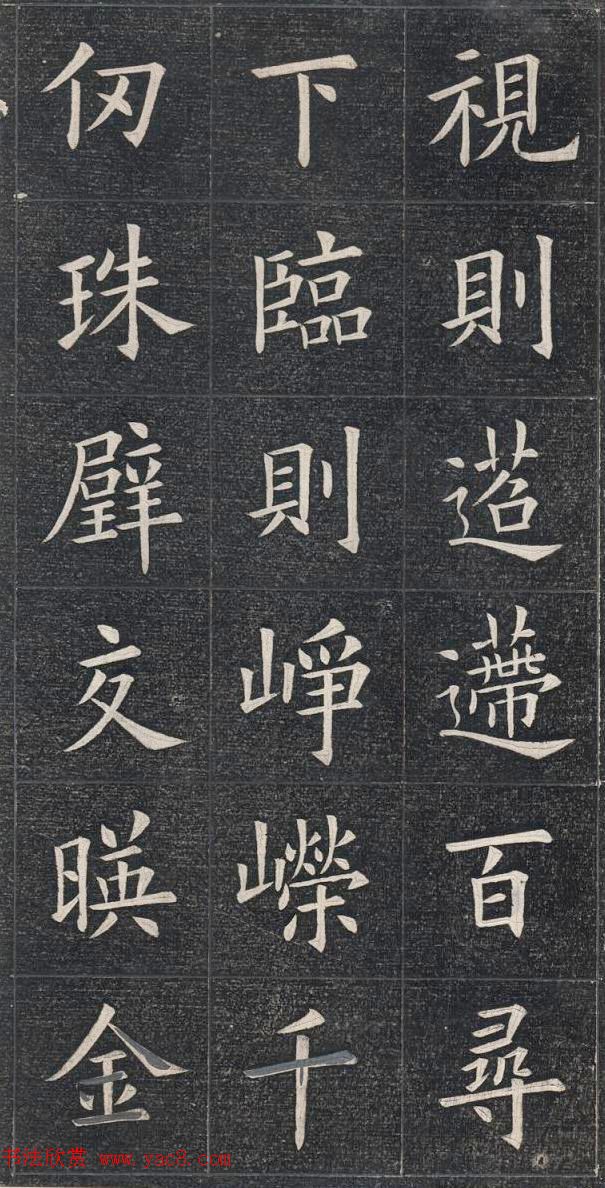 視則迢遰百尋
下臨則崢嶸千
仞珠璧交暎金
书法欣赏 www.yac8.com